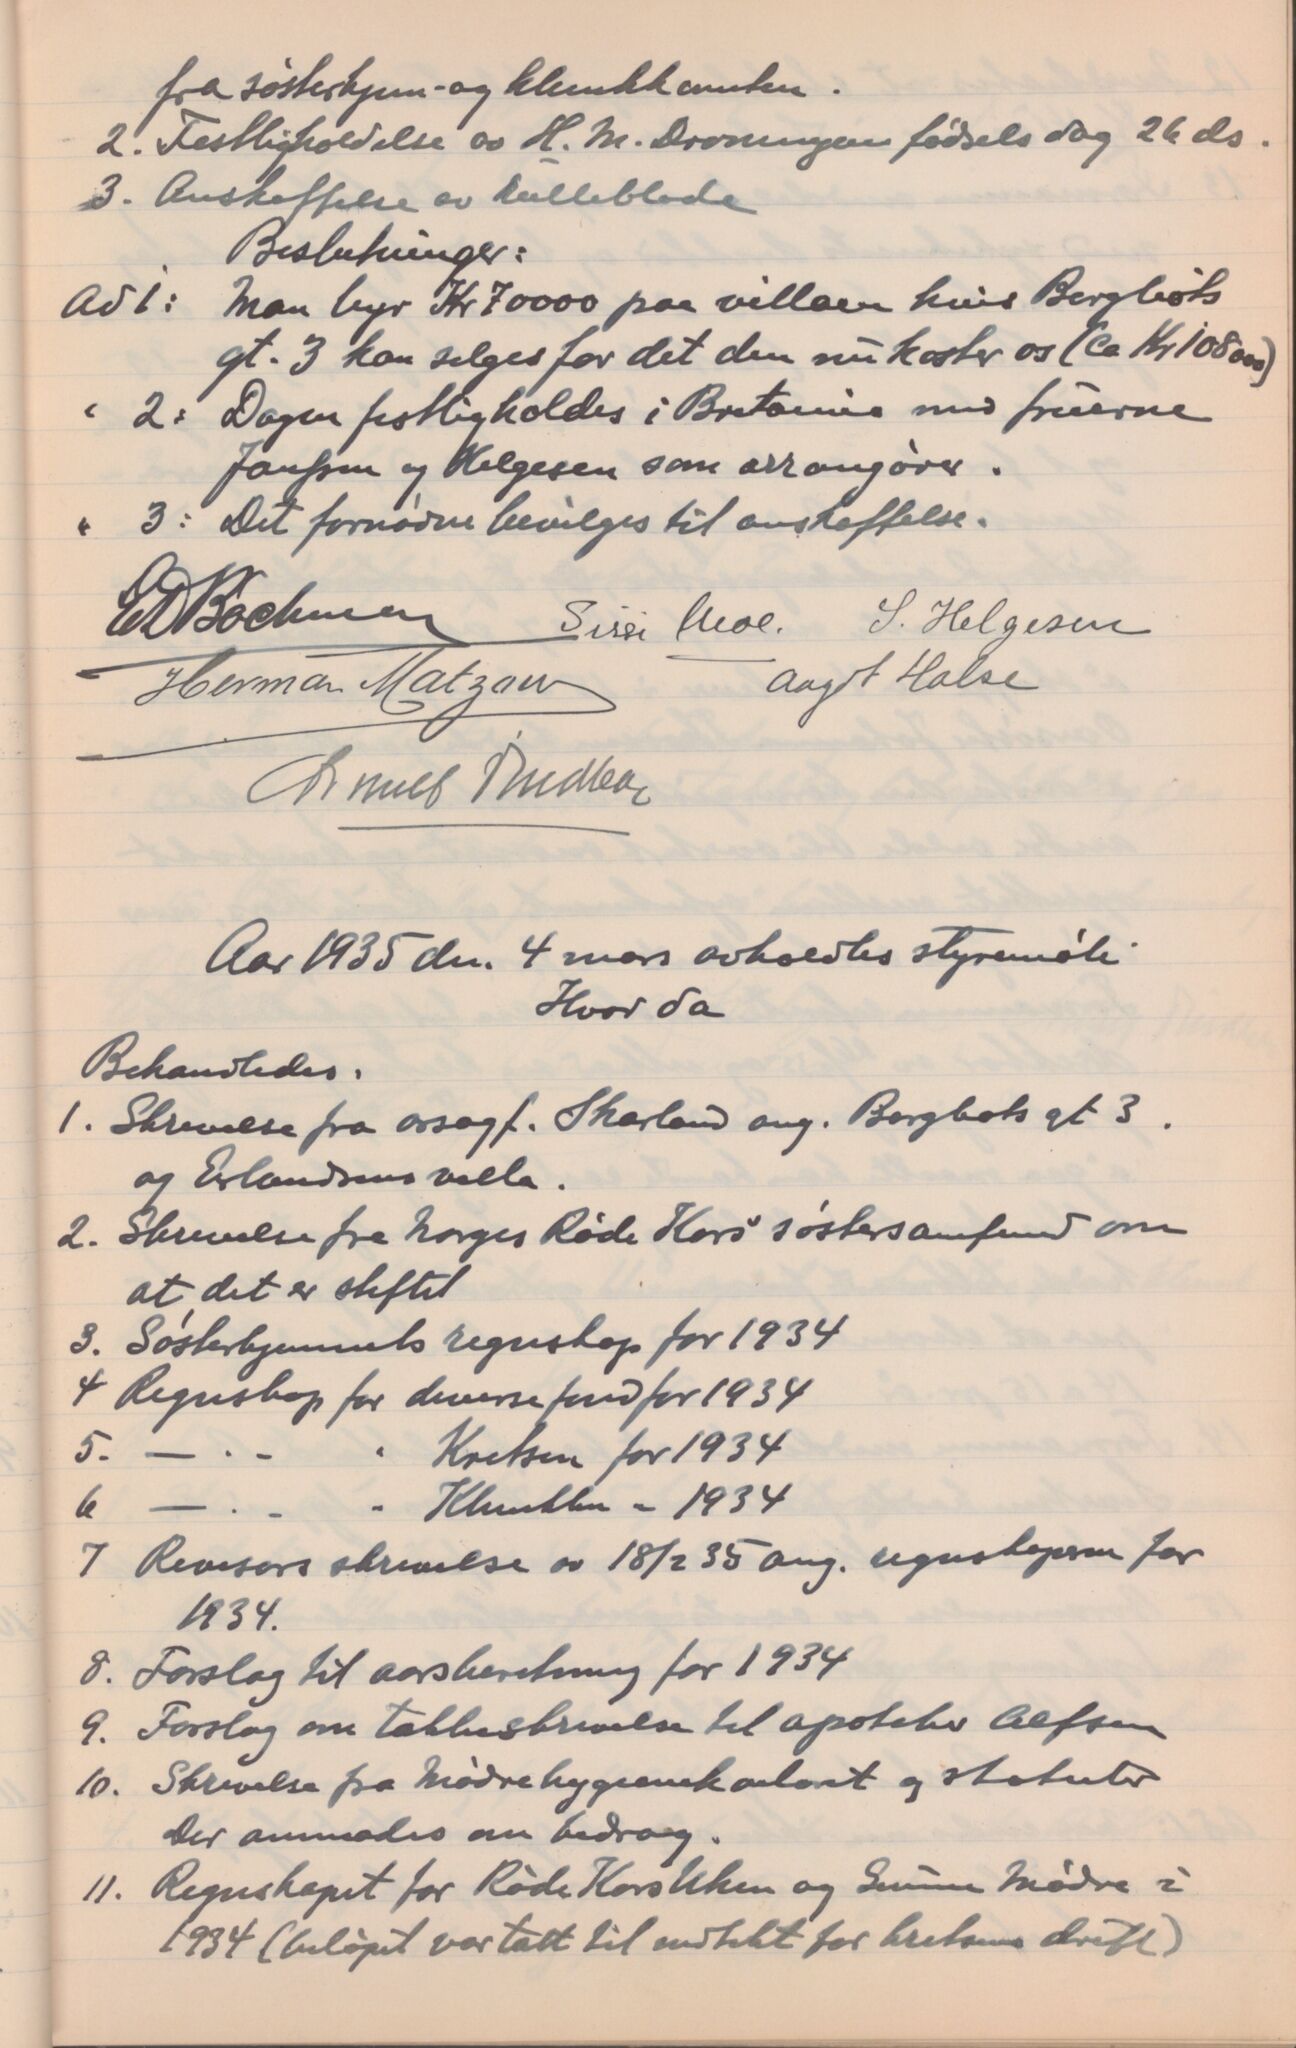 fra søsterhjem- og klinikkomiteen.
2. Festligholdelse av H. M. Dronningen fødsels dag 26 ds.
3. Anskaffelse av rulleblade
Beslutninger:
Ad 1: Man byr Kr 70000 paa villaen hvis Bergliots
gt. 3 kan selges for det den nu koster os (Ca Kr 108000)
" 2: Dagen festligholdes i Britannia med fruerne
Janssen og Helgesen som arrangører.
" 3: Det fornødne bevilges til anskaffelse.
Bachman Sissi Moe. S. Helgesen
Herman Matzow Aagot Halse
Arnulf
Aar 1935 den 4 mars avholdtes styremøte
Hvor da
Behandledes.
1. Skrivelse fra orsagf. Skarland ang. Bergliots gt 3.
og Erlandsens villa.
2. Skrivelse fra Norges Røde Kors' søstersamfund om
at det er stiftet
3. Søsterhjemmets regnskap for 1934
4 Regnskap for diverse fond for 1934
5. — . - " Kretsen for 1934
6 — . - " Klinikken - 1934
7 Revisors skrivelse av 18/2 35 ang. regnskapene for
1934.
8. Forslag til aarsberetning for 1934
9. Forslag om takkeskrivelse til apoteker Alfsen
10. Skrivelse fra Mødrehygienekontoret og statuter
Der anmodes om bidrag.
11. Regnskapet for Røde Kors Uken og Mødre i
1934 (beløpet var tatt til indtekt for kretsens drift)